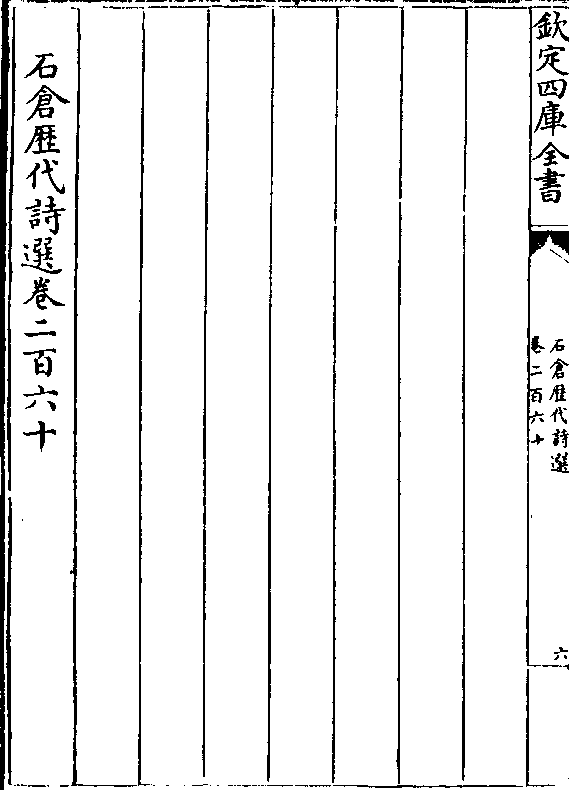 欽定四庫全書
石倉歴代詩選
卷二百六十
六
石倉歴代詩選卷二百六十